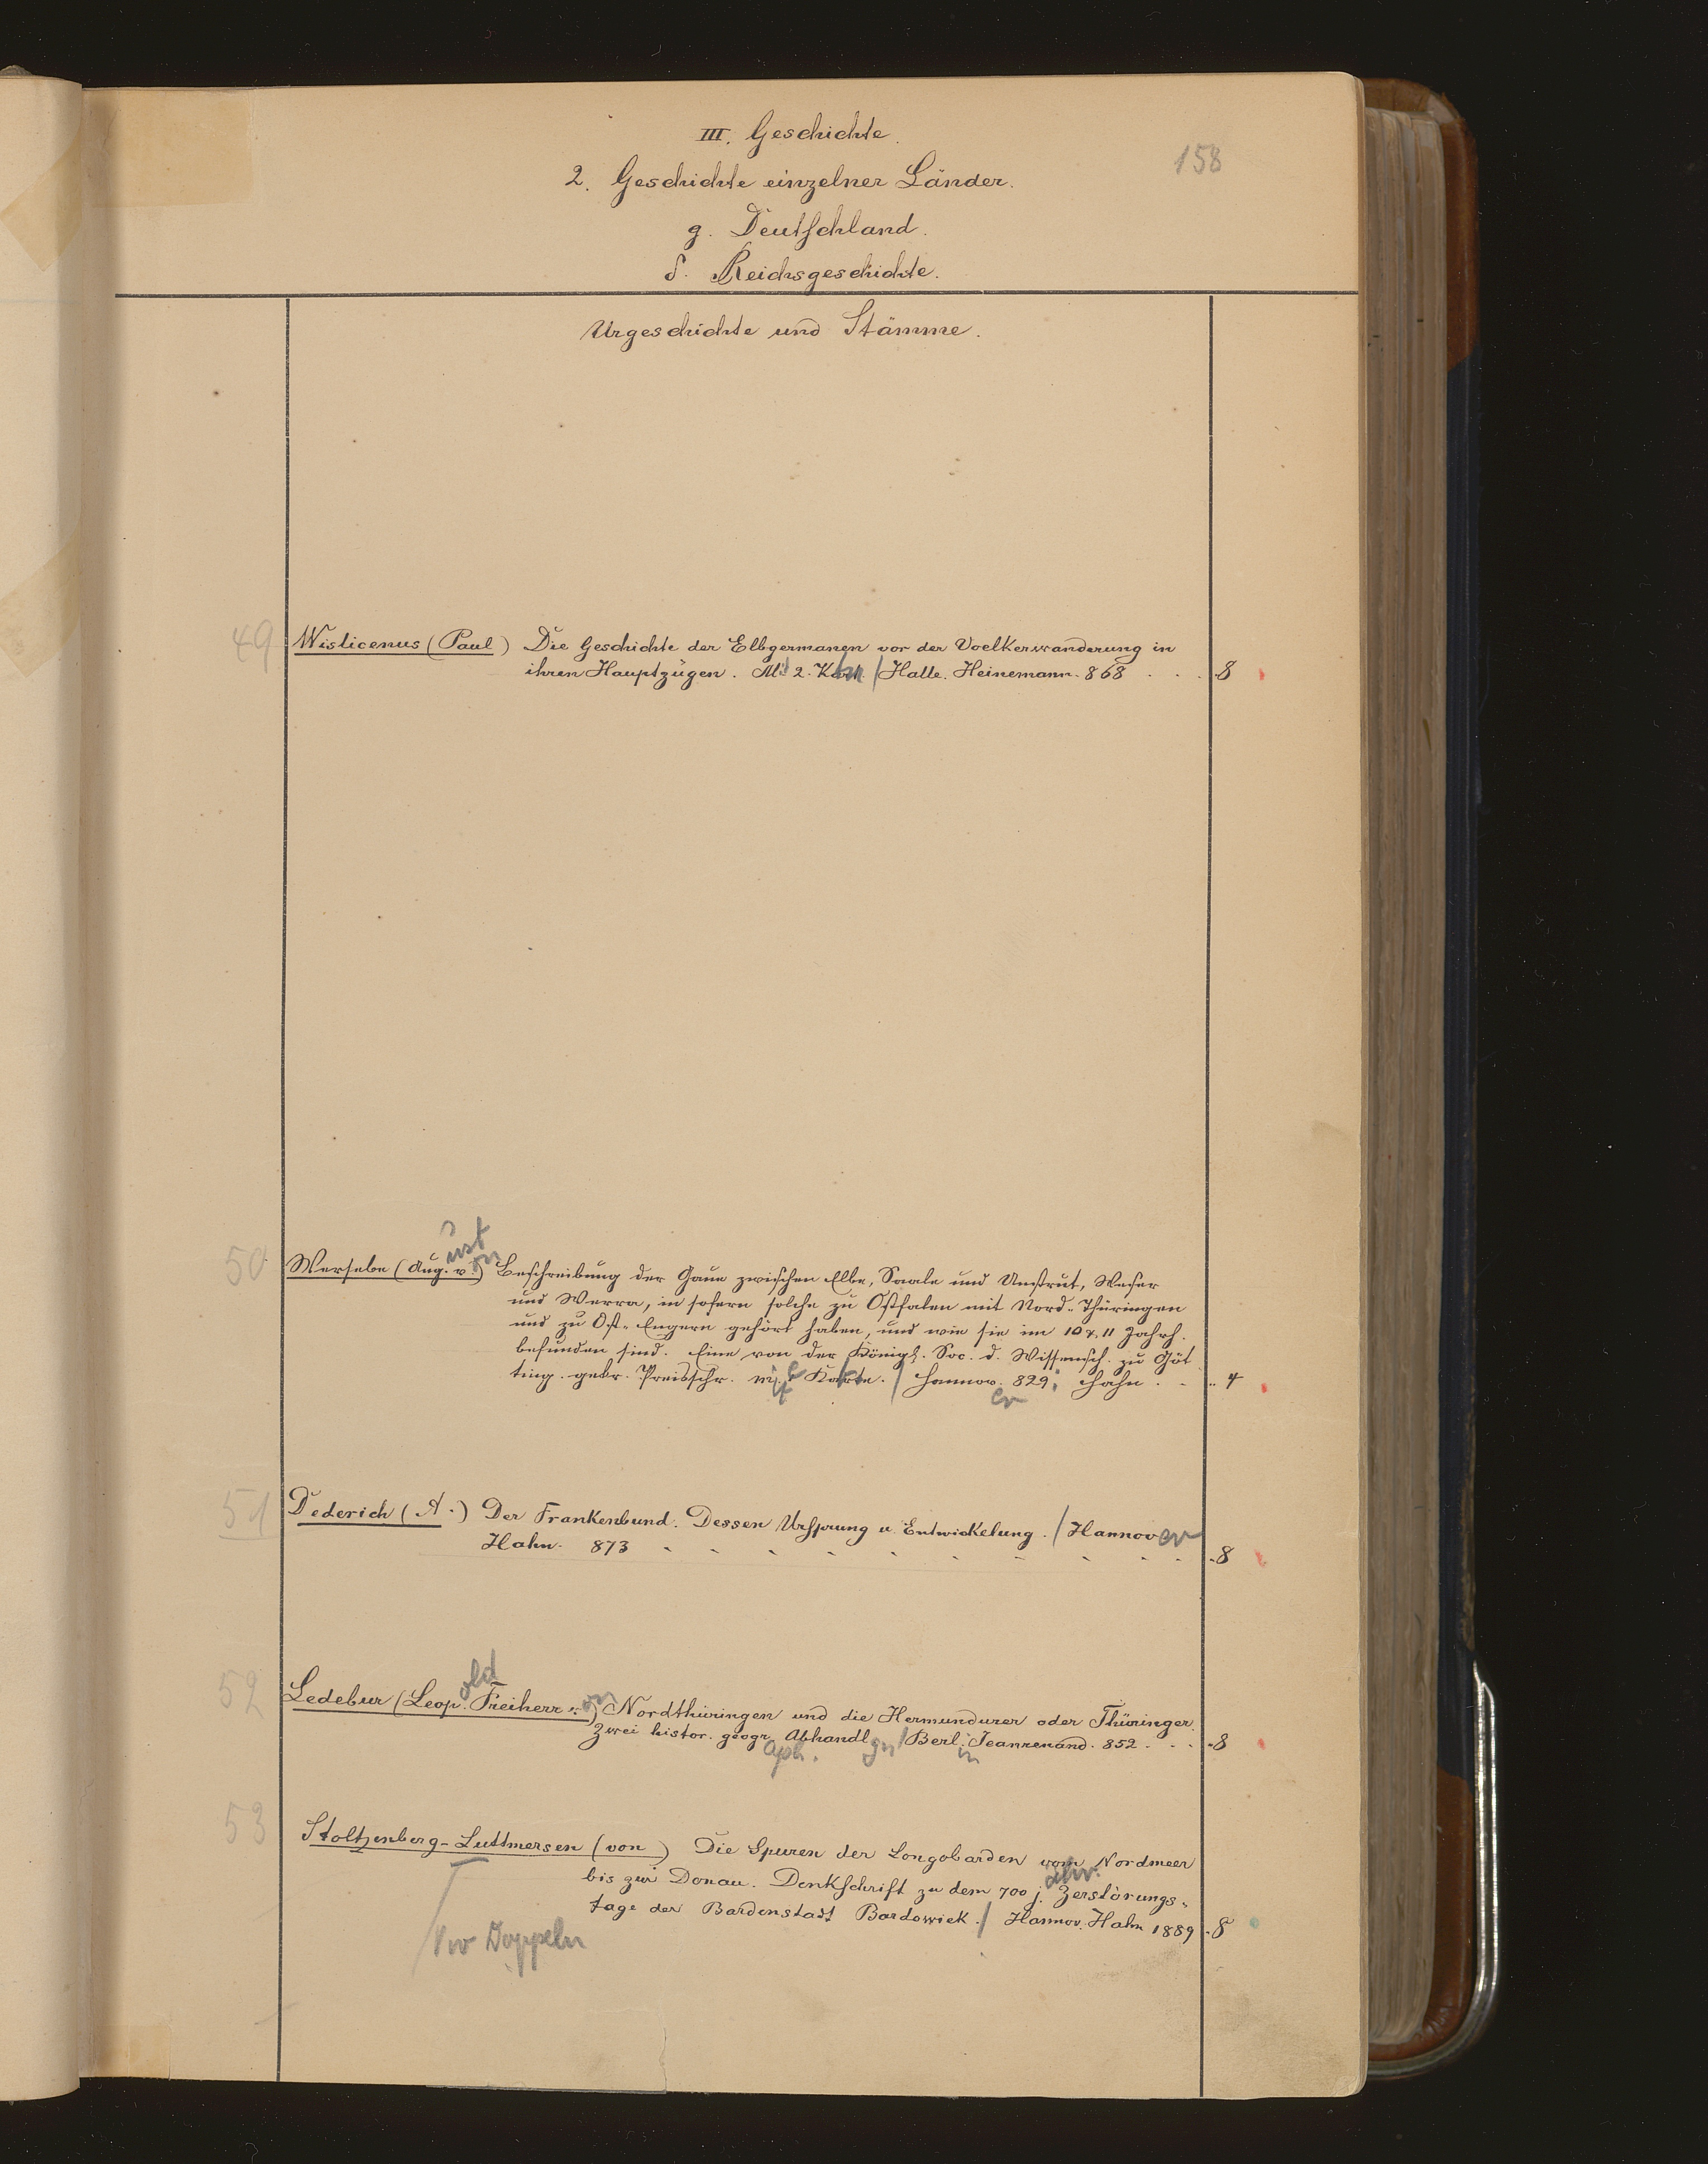 III. Geschichte.
158
2. Geschichte einzelner Länder.
g. Deutschland.
δ. Reichsgeschichte.
Urgeschichte und Stämme.
49 Wislicenus (Paul) Die Geschichte der Elbgermanen vor der Voelkerwanderung in
ihren Hauptzügen. Mit 2. Karten / Halle. Heinemann. 868 . . . 8
50 Wersebe (August von) Beschreibung der Gaue zwischen Elbe, Saale und Unstrut, Weser
und Werra, in sofern solche zu Ostfalen mit Nord-Thüringen
und zu Ost-Engern gehört haben, und wie sie im 10 & 11 Jahrh.
befunden sind. Eine von der Königl. Soc. d. Wissensch. zu Göt
ting. gekr. Preisschr. mit Karte. / Hannover 829. Hahn . . . 4
51 Dederich (A.) Der Frankenbund. Dessen Ursprung u. Entwickelung. / Hannover
Hahn. 873 . . . . . . . . . . 8
52 Ledebur (Leopold Freiherr von) Nordthüringen und die Hermundurer oder Thüringer.
Zwei histor. geograph. Abhandlgn / Berlin Jeanrenaud. 852 . . . 8
53 Stoltzenberg-Luttmersen (von) Die Spuren der Longobarden vom Nordmeer
bis zur Donau. Denkschrift zu dem 700 jähr. Zerstörungs-
tage der Bardenstadt Bardowiek. / Hannov. Hahn 1889 . 8
Doppeln